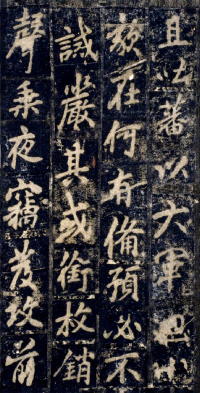 且吐蕃以大軍
在何有備預必不
誡嚴其或銜枚銷
聲乘夜竊發攻前